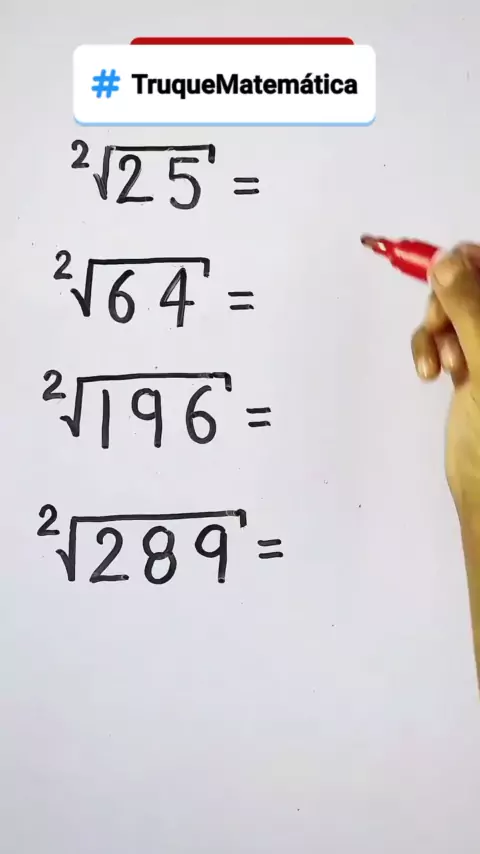 # TruqueMatemática
²√25 =
²√64 =
²√196 =
²√289 =